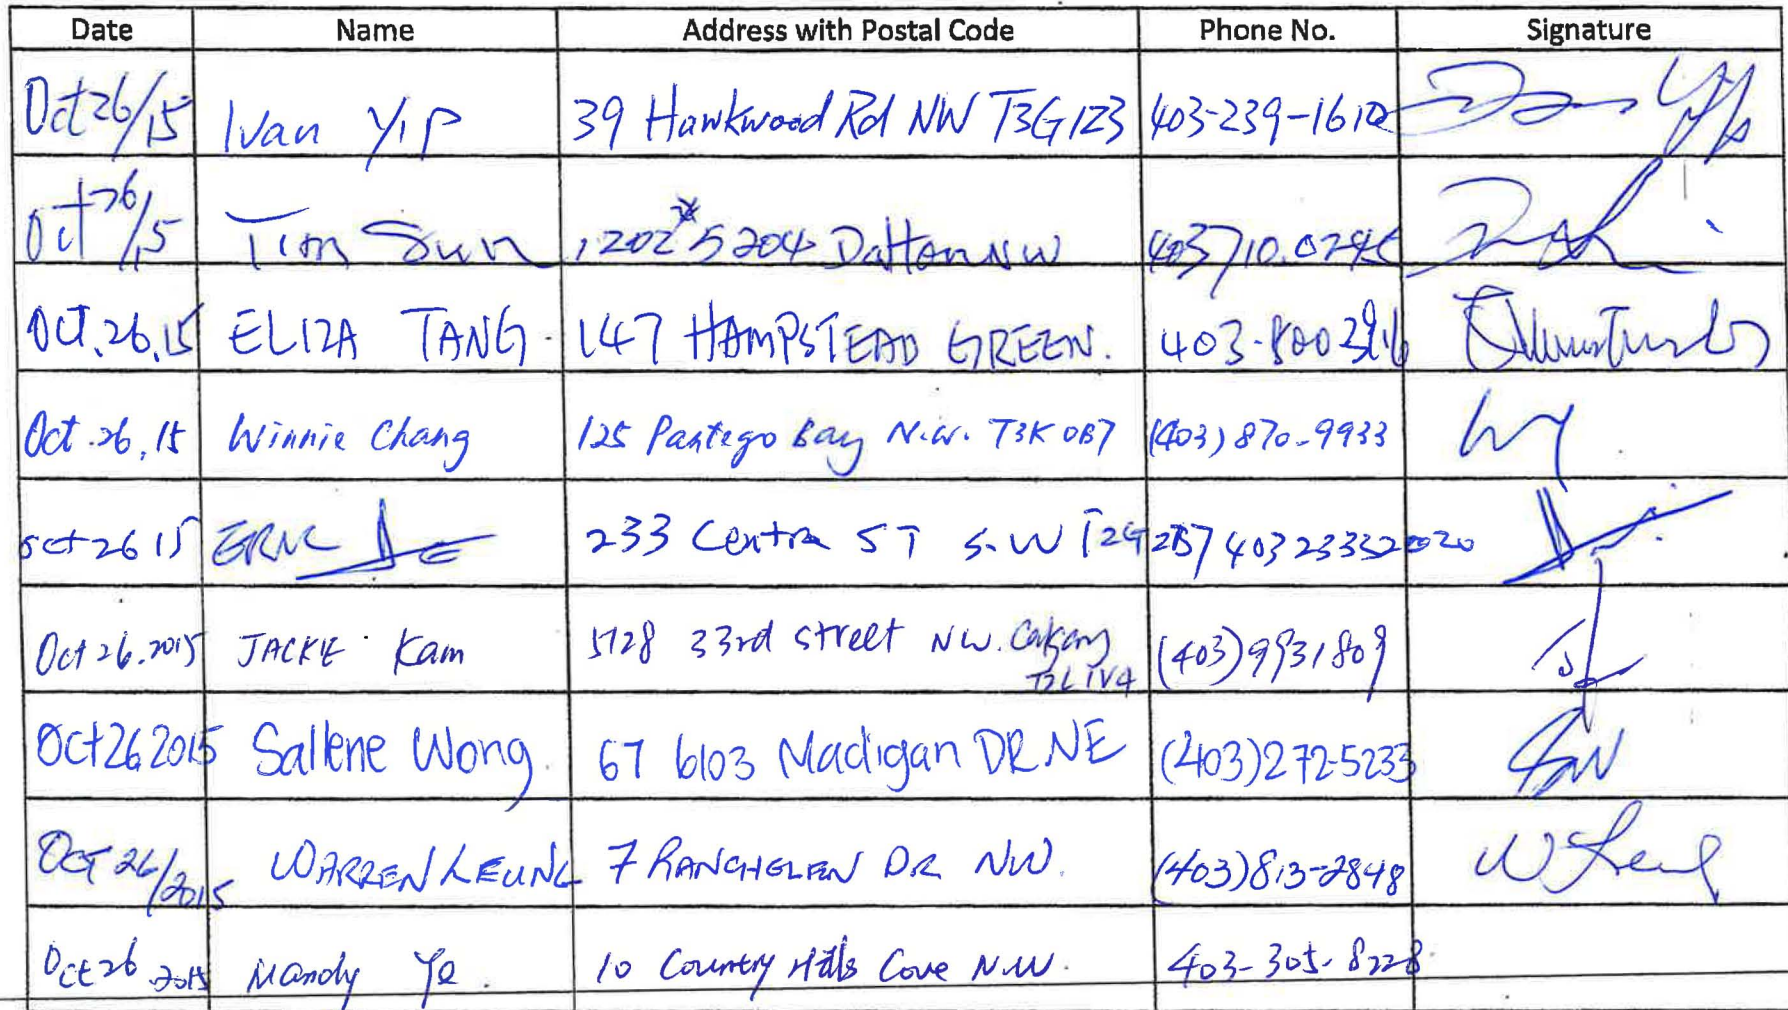 Date Name Address with Postal Code Phone No. Signature
Oct 26/15 Ivan Yip 39 Hawkwood Rd NW T3G1Z3 403-239-1612
Oct 26/15 Tim Sun 1202 5204 Dalton NW 403 710.0246
Oct.26.15 ELIZA TANG. 147 HAMPSTEAD GREEN. 403-800
Oct.26,15 Winnie Chang 125 Pantego Bay N.W. T3K 0B7 (403) 870-9933
Oct 26 15 ERIC 233 Centra ST S.W T2G 2B7 403
Oct 26.2015 JACKIE Kam 5128 33rd street NW. Calgary
T2L 1V4 (403)9931809
Oct 26 2015 Sallene Wong. 67 6103 Madigan DR.NE (403)272-5233
OCT 26/2015 WARREN LEUNG 7 RANCHGLEN DR NW. (403)813-2848 W Leung
Oct 26 2015 Mandy Ye. 10 Country Hills Cove N.W. 403-305-8228